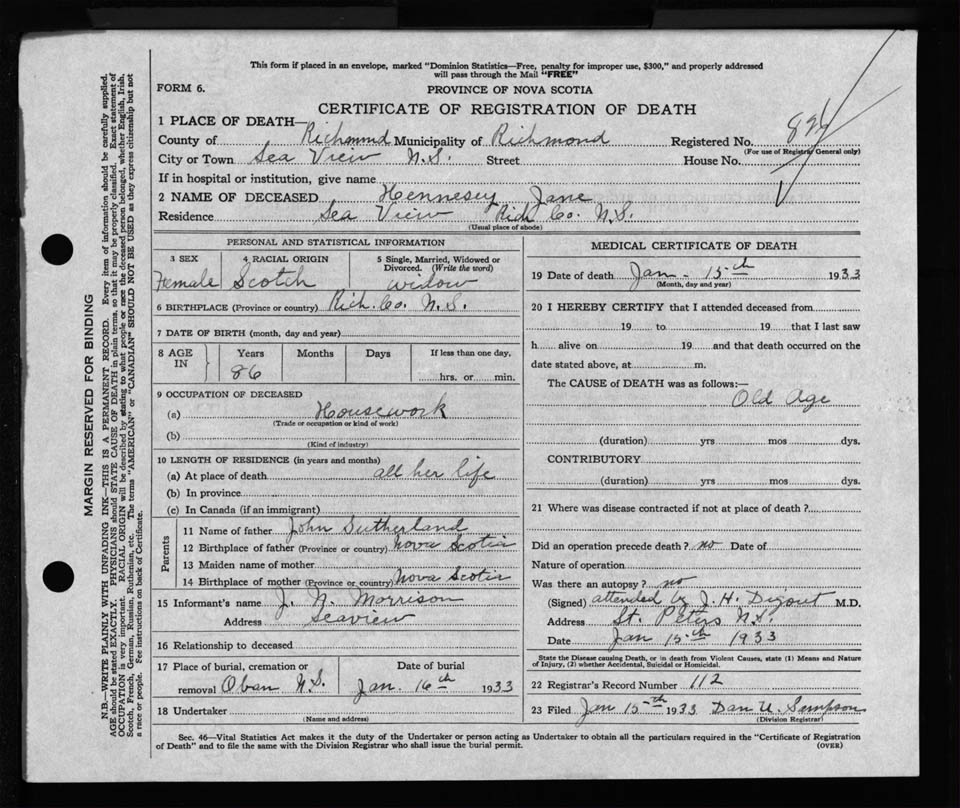 This form if placed in an envelope, marked "Dominion Statistics—Free, penalty for improper use, $300," and properly addressed
will pass through the Mail "FREE"
FORM 6.
PROVINCE OF NOVA SCOTIA
CERTIFICATE OF REGISTRATION OF DEATH
1 PLACE OF DEATH—
County of Richmond Municipality of Richmond Registered No.
(For use of Registrar General only)
City or Town Sea View N.S. Street House No.
If in hospital or institution, give name
2 NAME OF DECEASED Hennesey Jane
Residence Sea View Rich Co. N.S.
(Usual place of abode)
PERSONAL AND STATISTICAL INFORMATION
3 SEX 4 RACIAL ORIGIN 5 Single, Married, Widowed or
Divorced. (Write the word)
Female Scotch widow
6 BIRTHPLACE (Province or country) Rich. Co. N.S.
7 DATE OF BIRTH (month, day and year)
8 AGE IN Years Months Days If less than one day.
86 hrs. or min.
9 OCCUPATION OF DECEASED
(a) Housework
(Trade or occupation or kind of work)
(b)
(Kind of industry)
10 LENGTH OF RESIDENCE (in years and months)
(a) At place of death all her life
(b) In province
(c) In Canada (if an immigrant)
Parents
11 Name of father John Sutherland
12 Birthplace of father (Province or country) Nova Scotia
13 Maiden name of mother
14 Birthplace of mother (Province or country) Nova Scotia
15 Informant's name J. N. Morrison
Address Seaview
16 Relationship to deceased
17 Place of burial, cremation or Date of burial
removal Oban N.S. Jan. 16th 1933
18 Undertaker
(Name and address)
MEDICAL CERTIFICATE OF DEATH
19 Date of death Jan - 15th 1933
(Month, day and year)
20 I HEREBY CERTIFY that I attended deceased from
19 to 19 that I last saw
h alive on 19 and that death occurred on the
date stated above, at m.
The CAUSE of DEATH was as follows:—
Old Age
(duration) yrs mos dys.
CONTRIBUTORY
(duration) yrs mos dys.
21 Where was disease contracted if not at place of death?
Did an operation precede death? no Date of
Nature of operation
Was there an autopsy? no
(Signed) attended by J. H. Digout M.D.
Address St. Peters N.S.
Date Jan 15th 1933
State the Disease causing Death, or in death from Violent Causes, state (1) Means and Nature
of Injury, (2) whether Accidental, Suicidal or Homicidal.
22 Registrar's Record Number 112
23 Filed Jan 15th 1933 Dan U. Simpson
(Division Registrar)
Sec. 46—Vital Statistics Act makes it the duty of the Undertaker or person acting as Undertaker to obtain all the particulars required in the "Certificate of Registration
of Death" and to file the same with the Division Registrar who shall issue the burial permit. (OVER)
MARGIN RESERVED FOR BINDING
N.B.—WRITE PLAINLY WITH UNFADING INK—THIS IS A PERMANENT RECORD. Every item of information should be carefully supplied.
AGE should be stated EXACTLY. PHYSICIANS should STATE CAUSE OF DEATH in plain terms, so that it may be properly classified. Exact statement of
OCCUPATION is very important. RACIAL ORIGIN will be described by stating to what people or race the deceased person belonged, whether English, Irish,
Scotch, French, German, Russian, Ruthenian, etc. The terms "AMERICAN" or "CANADIAN" SHOULD NOT BE USED as they express citizenship but not
a race or people. See instructions on back of Certificate.